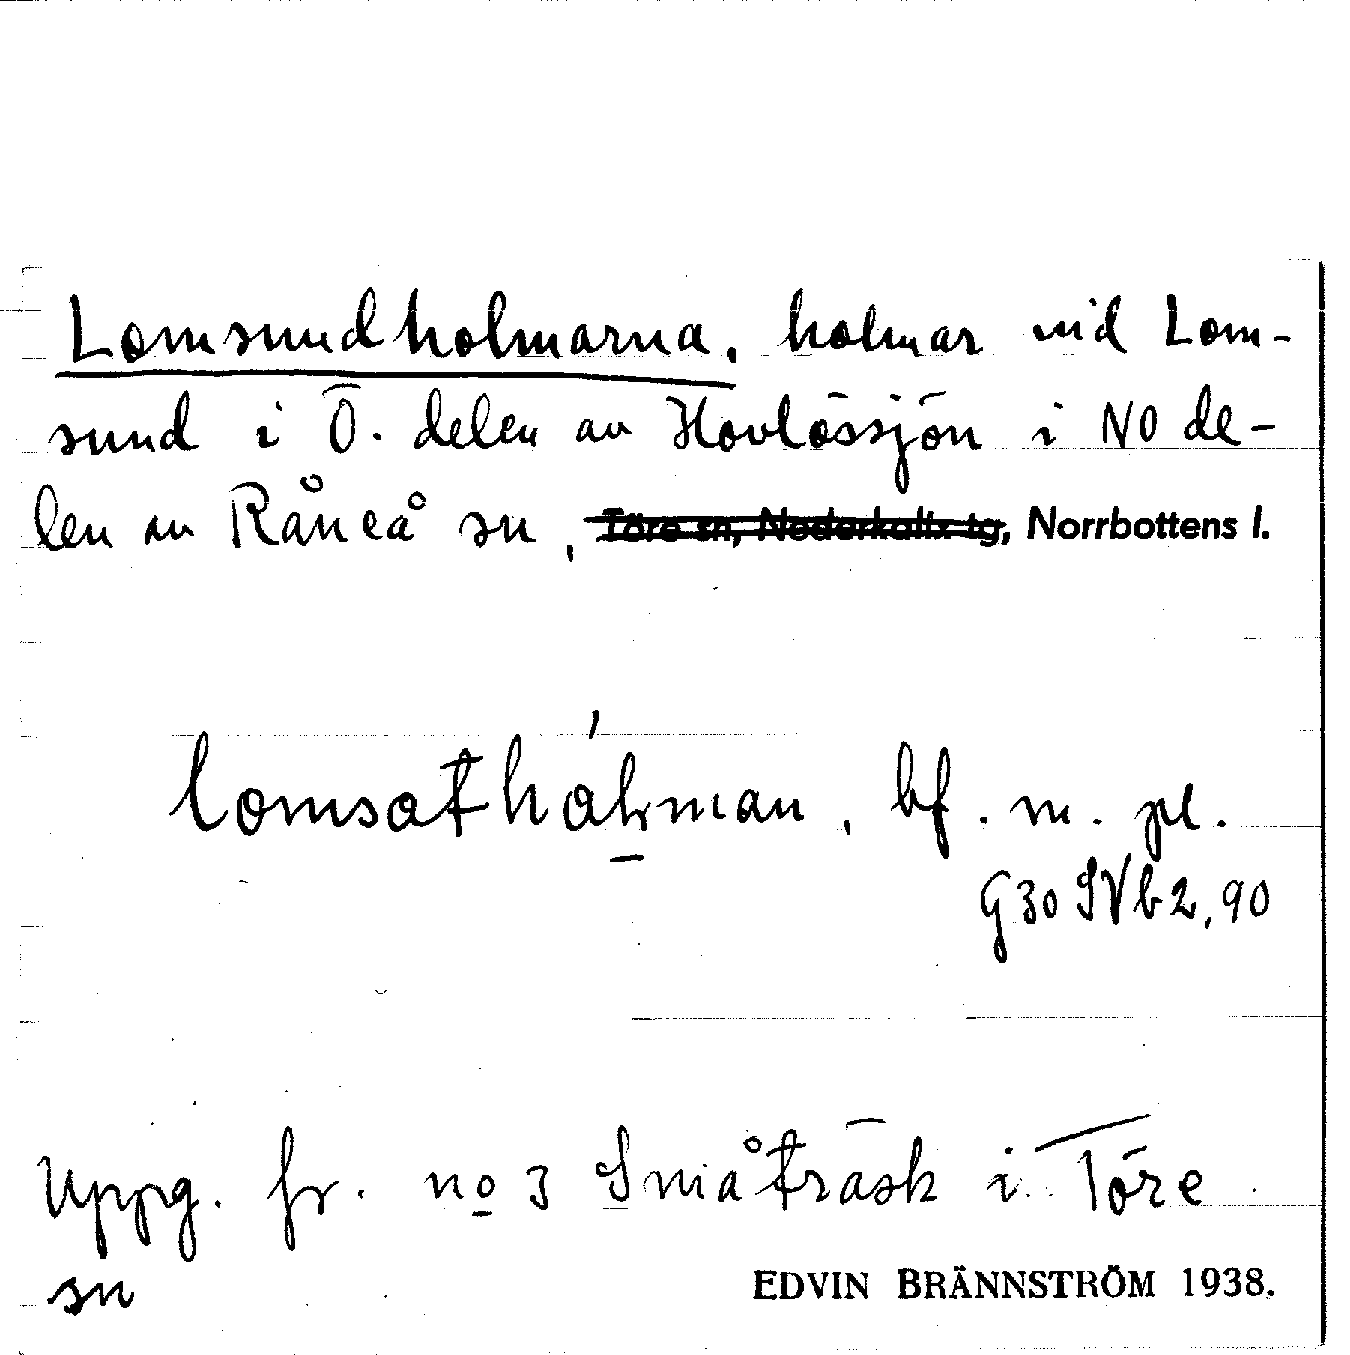 Lomsundholmarna, holmar vid Lom-
sund i Ö. delen av Hovlössjön i NO de-
len av Råneå sn, Töre sn, Nederkalix tg, Norrbottens l.
lomsothólman, bf. m. pl.
G30 IVb2,90
Uppg. fr. no 3 Småträsk i Töre
sn
EDVIN BRÄNNSTRÖM 1938.